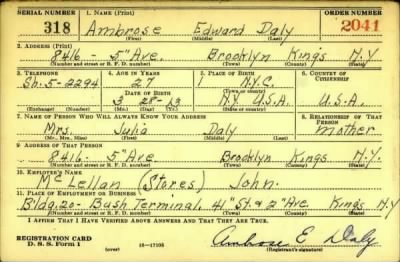 SERIAL NUMBER 1. NAME (Print) ORDER NUMBER
318 Ambrose Edward Daly 2041
(First) (Middle) (Last)
2. ADDRESS (Print)
8416 - 5" Ave. Brooklyn Kings N.Y
(Number and street or R. F. D. number) (Town) (County) (State)
3. TELEPHONE 4. AGE IN YEARS 5. PLACE OF BIRTH 6. COUNTRY OF CITIZENSHIP
Sh. 5-2294 27 N.Y.C.
DATE OF BIRTH (Town or county)
3 28-13 N.Y. U.S.A. U.S.A.
(Exchange) (Number) (Mo.) (Day) (Yr.) (State or country)
7. NAME OF PERSON WHO WILL ALWAYS KNOW YOUR ADDRESS 8. RELATIONSHIP OF THAT PERSON
Mrs. Julia Daly mother
(Mr., Mrs., Miss) (First) (Middle) (Last)
9. ADDRESS OF THAT PERSON
8416 - 5" Ave Brooklyn Kings N.Y.
(Number and street or R. F. D. number) (Town) (County) (State)
10. EMPLOYER'S NAME
McLellan (Stores) John.
11. PLACE OF EMPLOYMENT OR BUSINESS
Bldg. 20 - Bush Terminal, 41" St. & 2" Ave Kings N.Y
(Number and street or R. F. D. number) (Town) (County) (State)
I AFFIRM THAT I HAVE VERIFIED ABOVE ANSWERS AND THAT THEY ARE TRUE.
REGISTRATION CARD
D. S. S. Form 1 (over) 16-17105 Ambrose E Daly